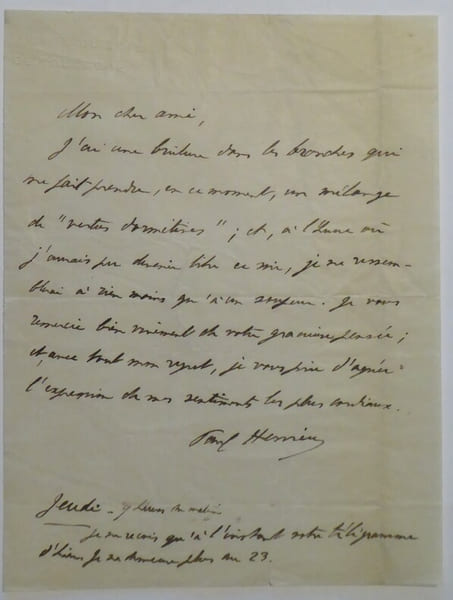 Mon cher ami,
J'ai une brûlure dans les bronches qui
me fait prendre, en ce moment, un mélange
de "vertus dormitives" ; et, à l'heure où
j'aurais pu devenir libre ce soir, je ne ressem-
blerai à rien moins qu'à un soupeur. Je vous
remercie bien vivement de votre gracieuse pensée ;
et, avec tout mon regret, je vous prie d'agréer
l'expression de mes sentiments les plus cordiaux.
Paul Hervieu
Jeudi - 9 heures du matin
Je ne reçois qu'à l'instant votre télégramme
d'hier. Je ne demeure plus au 23.